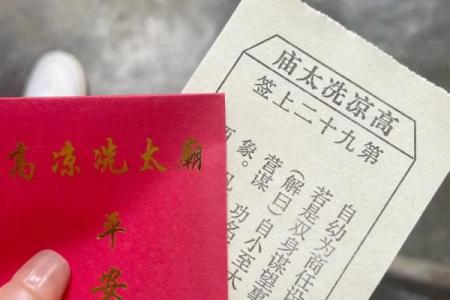 高凉冼太廟
平安
高凉冼太庙
第九十二上签
自幼为商任设
若是双身谋望事
(解曰)自小至大
营谋
象。见功名